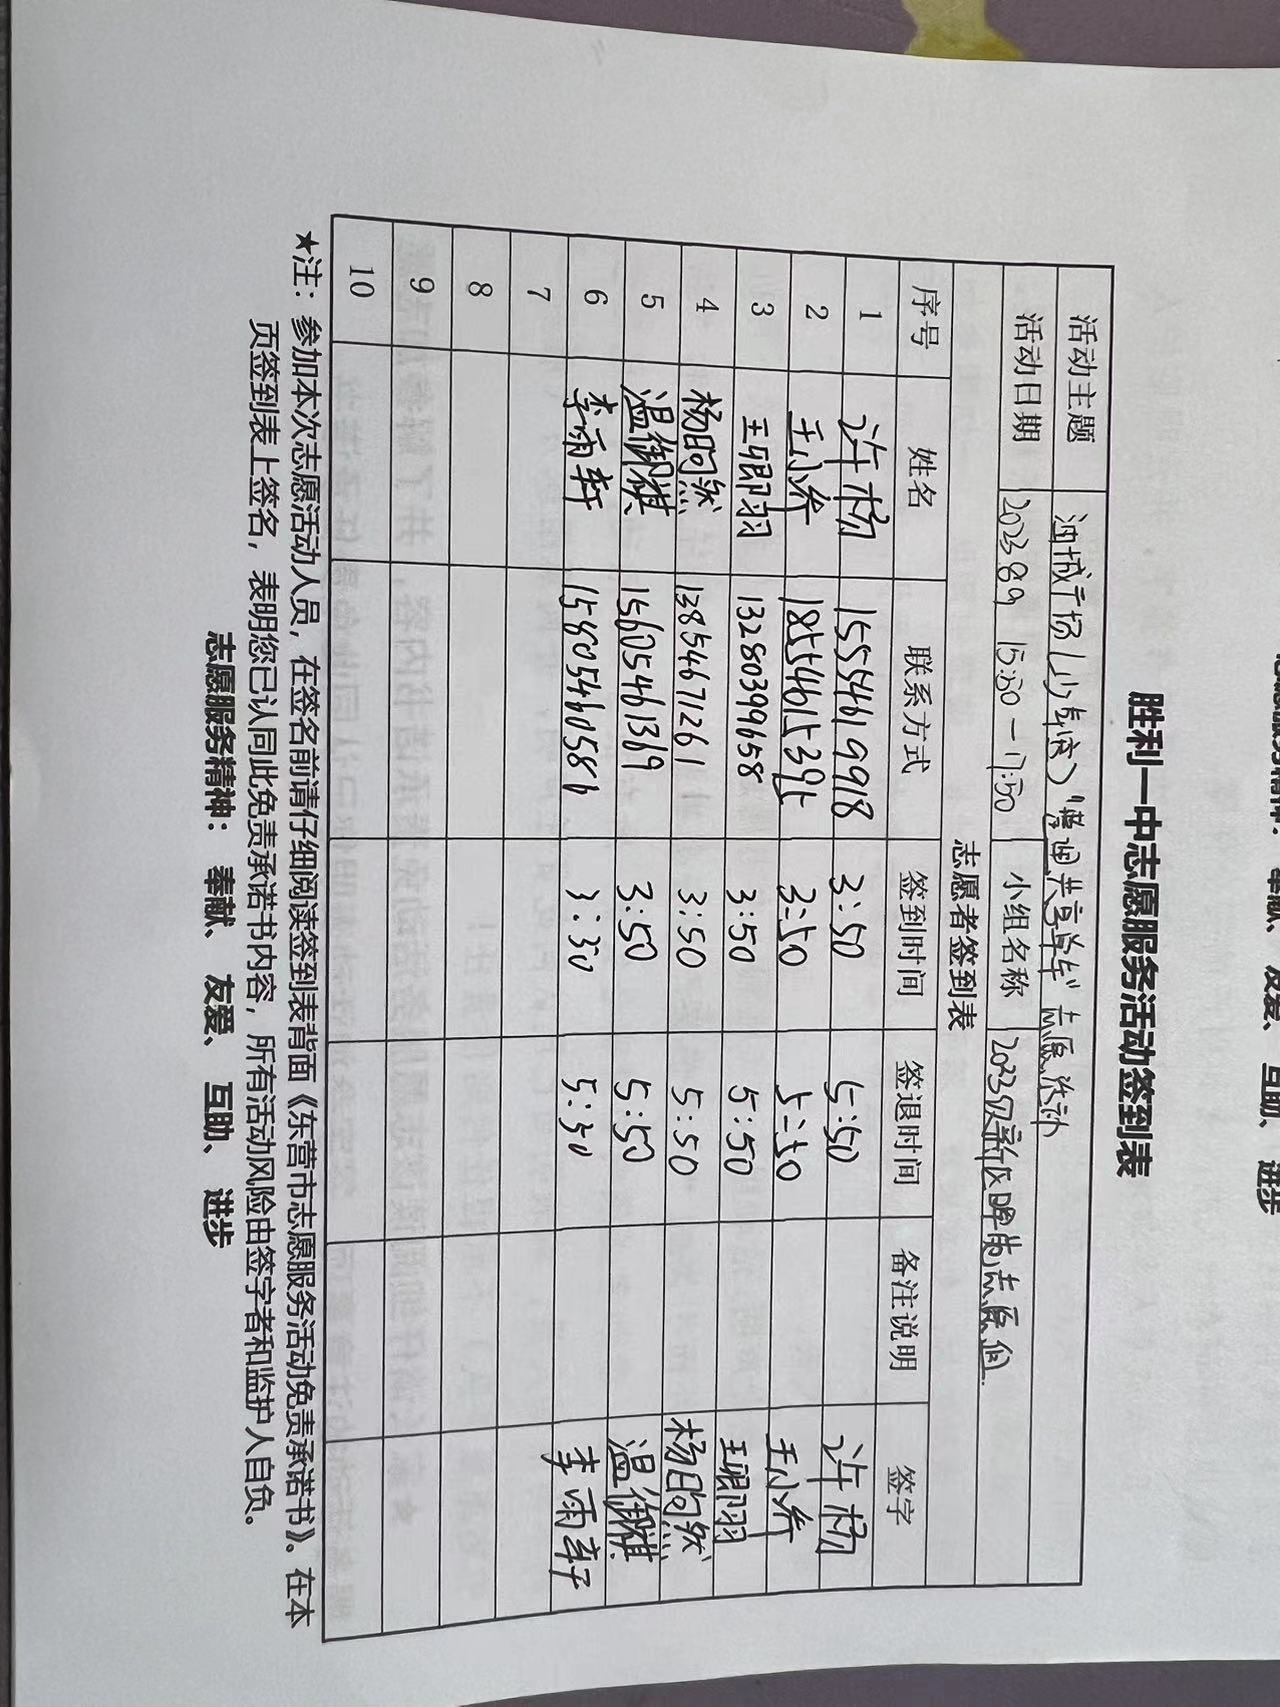 胜利一中志愿服务活动签到表
活动主题 油城广场(少年宫)" 共享单车"志愿活动
活动日期 2023 8.9 15:30-17:30 小组名称 2023级 志愿
志愿者签到表
序号 姓名 联系方式 签到时间 签退时间 备注说明 签字
1 许杨 15554619918 3:50 5:50 许杨
2 王小乔 18554615395 3:50 5:50 王小乔
3 王卿羽 13280399658 3:50 5:50 王卿羽
4 杨昀然 13854671261 3:50 5:50 杨昀然
5 温御祺 15605461369 3:50 5:50 温御祺
6 李雨轩 15805460586 3:30 5:30 李雨轩
7
8
9
10
★注：参加本次志愿活动人员，在签名前请仔细阅读签到表背面《东营市志愿服务活动免责承诺书》。在本
页签到表上签名，表明您已认同此免责承诺书内容，所有活动风险由签字者和监护人自负。
志愿服务精神： 奉献、 友爱、 互助、 进步